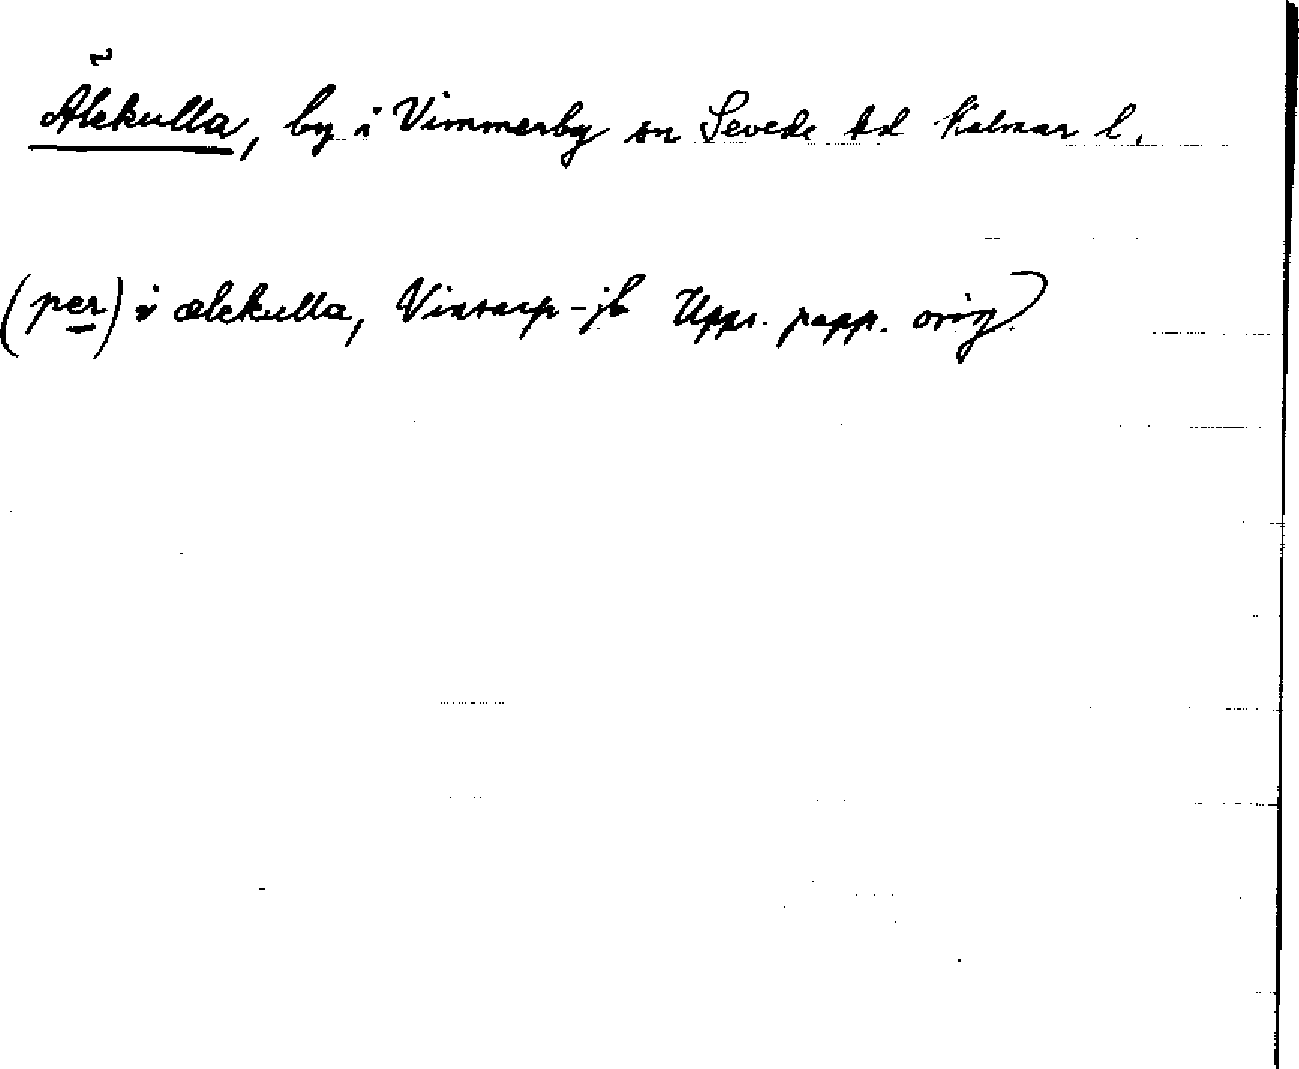 Älekulla, by i Vimmerby sn Sevede hd Kalmar l.
(per) i ælekulla, Vinstorp-jb Upps. papp. orig.